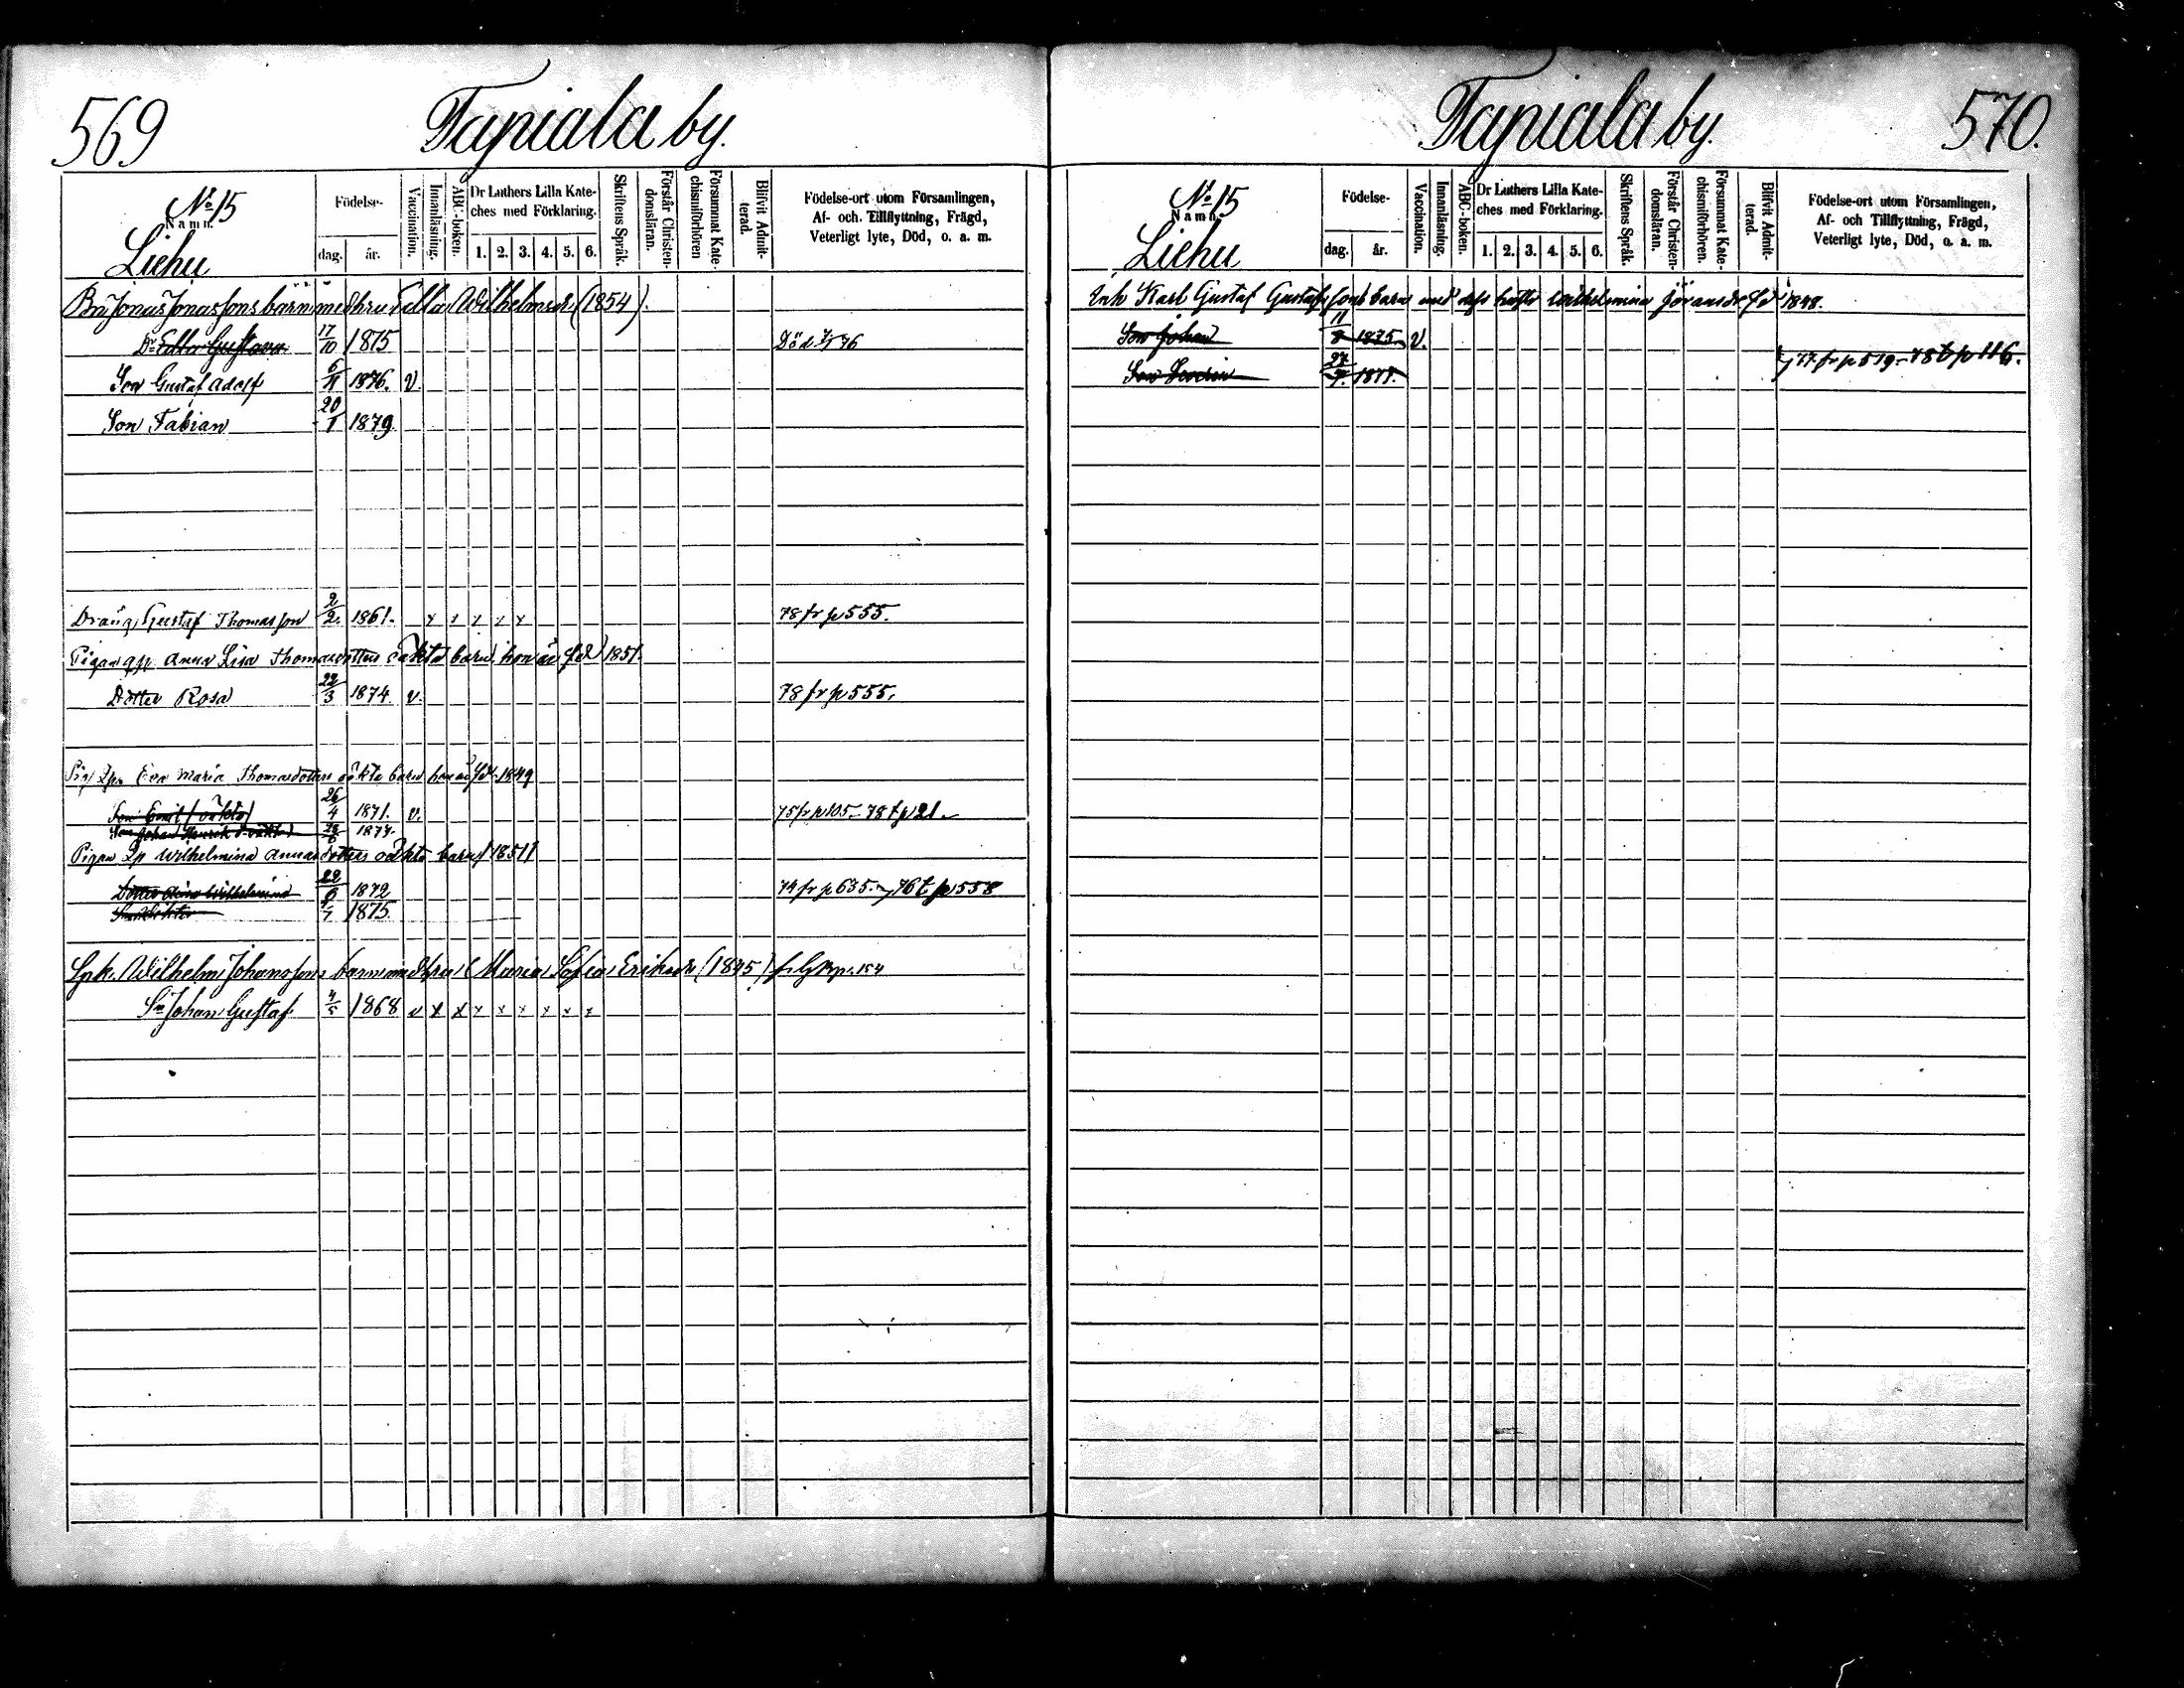 569
Tapiala by.
No 15
Namn.
Liehu
Födelse-
dag.
år.
Vaccination.
Innanläsning.
ABC-boken.
Dr Luthers Lilla Kate-
ches med Förklaring.
1. 2. 3. 4. 5. 6.
Skriftens Språk.
Förstår Christen-
domsläran.
Försummat Kate-
chismiförhören
Blifvit Admit-
terad.
Födelse-ort utom Församlingen,
Af- och Tillflyttning, Frägd,
Veterligt lyte, Död, o. a. m.
Jonas Jonassons barn med hru Wilhelmsdr (1854).
Gustava 17/10 1875 Död 76
Son Gustaf Adolf 6/11 1876. v.
Son Fabian 20/1 1879
Dräng Gustaf Thomasson 2/2. 1861. x x x x x 78 fr p 555.
Pigan Anna Lisa Thomasdotters oäkta barn hon är föd 1851.
Dotter Rosa 22/3 1874. v. 78 fr p 555.
Eva Maria Thomasdotters oäkta barn hon är föd 1849
Son Emil (oäkta) 26/4 1871. v. 75 fr p 105 - 78 t p 21.
Son Johan Henrik 1877.
Pigan Wilhelmina Annasdotters oäkta barn / 1851 /
Dotter Wilhelmina 22 1872 74 fr p 635. 76 t p 558
1875
Wilhelm Johanssons barn med hru Maria Sofia Eriksdr (1845)
Sn Johan Gustaf 4/5 1868 v x x x x x x x x
Tapiala by.
570.
No 15
Namn.
Liehu
Födelse-
dag.
år.
Vaccination.
Innanläsning.
ABC-boken.
Dr Luthers Lilla Kate-
ches med Förklaring.
1. 2. 3. 4. 5. 6.
Skriftens Språk.
Förstår Christen-
domsläran.
Försummat Kate-
chismiförhören.
Blifvit Admit-
terad.
Födelse-ort utom Församlingen,
Af- och Tillflyttning, Frägd,
Veterligt lyte, Död, o. a. m.
Inh Karl Gustaf Gustafssons barn med dess hustru Wilhelmina Göransdr föd 1848.
Son Johan 11/8 1875 v.
77 fr p 519 - 78 t p 116.
Son Severin 27